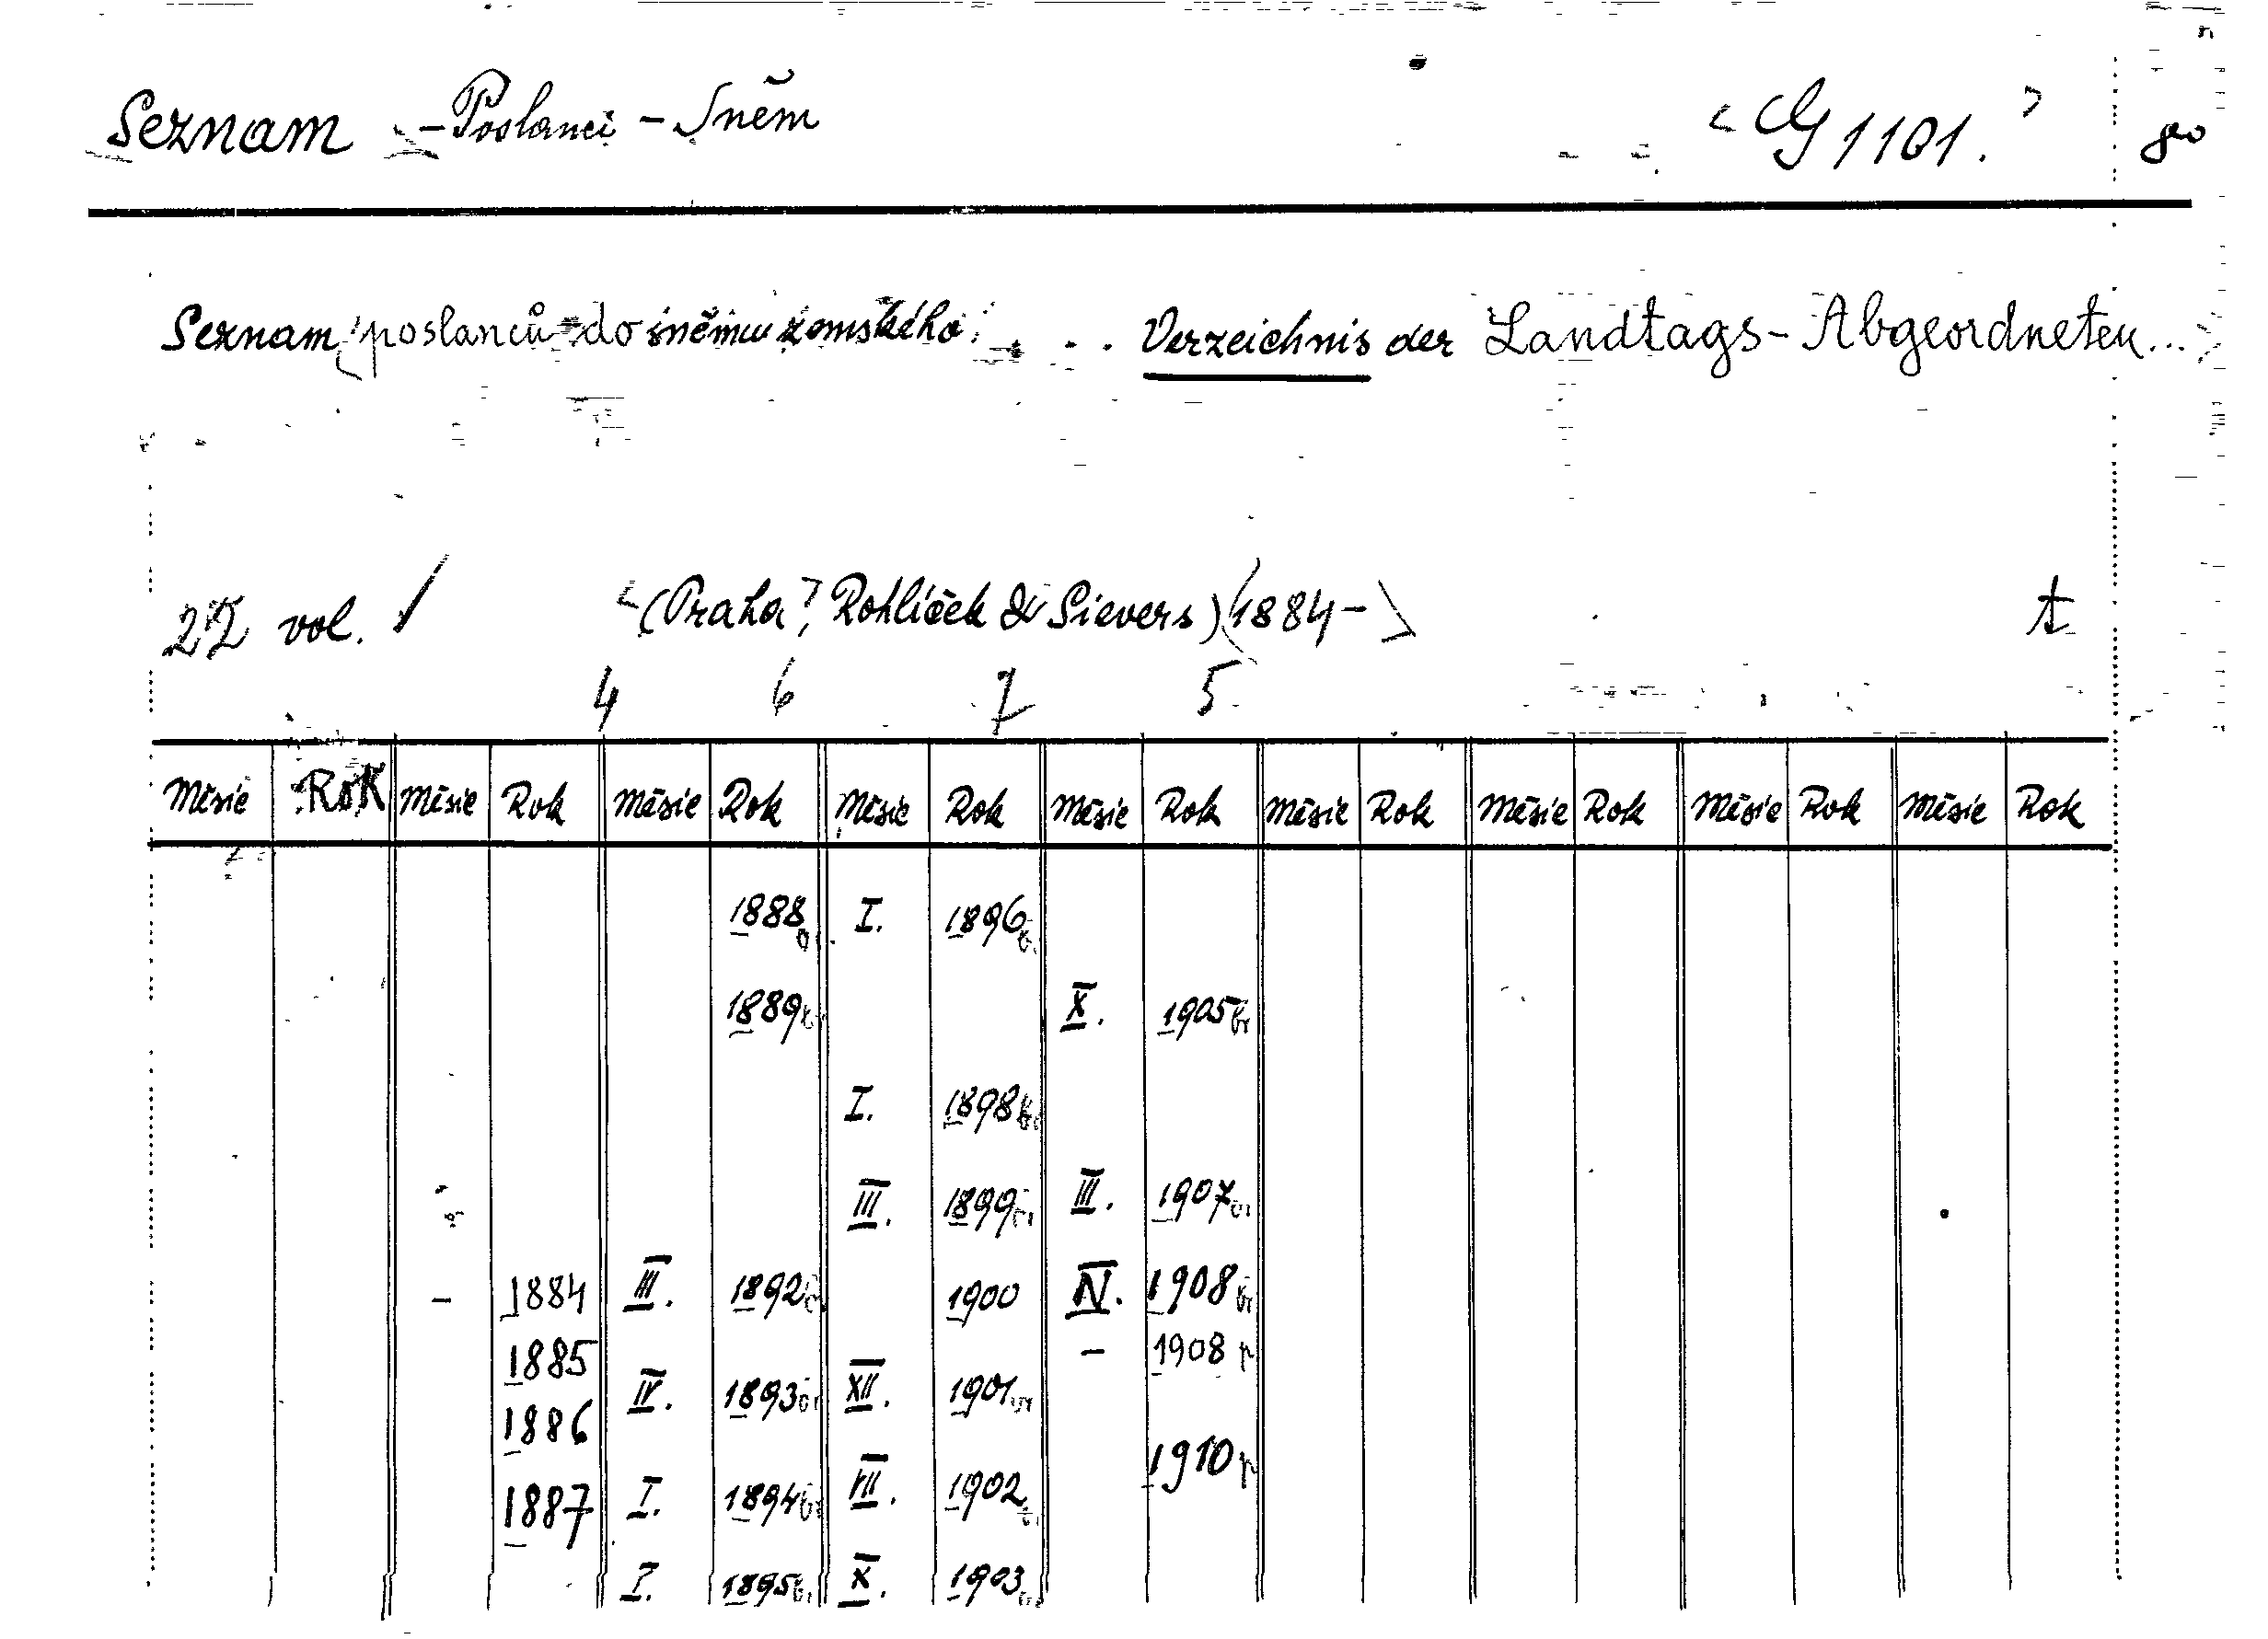 Seznam - Poslanci - Sněm G 1101. 8°
Seznam poslanců do sněmu zemského ... Verzeichnis der Landtags-Abgeordneten...
22 vol. (Praha, Rohlíček & Sievers) 1884 - t
4 6 7 5
Měsíc Rok Měsíc Rok Měsíc Rok Měsíc Rok Měsíc Rok Měsíc Rok Měsíc Rok Měsíc Rok Měsíc Rok
1888 I. 1896
1889 X. 1905
I. 1898
III. 1899 III. 1907
- 1884 III. 1892 1900 IV. 1908
1885 - 1908 p
IV. 1893 XII. 1901
1886
1910 p
1887 I. 1894 VII. 1902
I. 1895 X. 1903